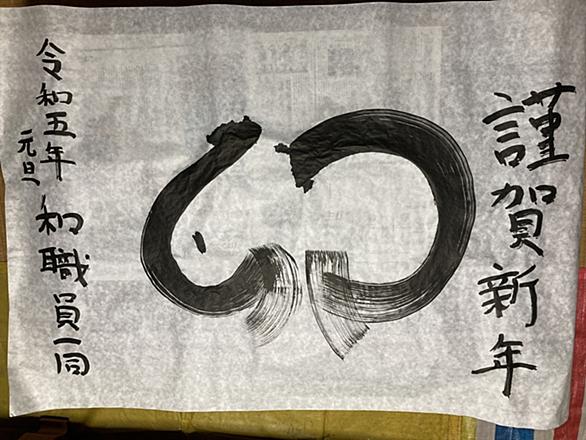 謹賀新年
卯
令和五年
元旦
和職員一同